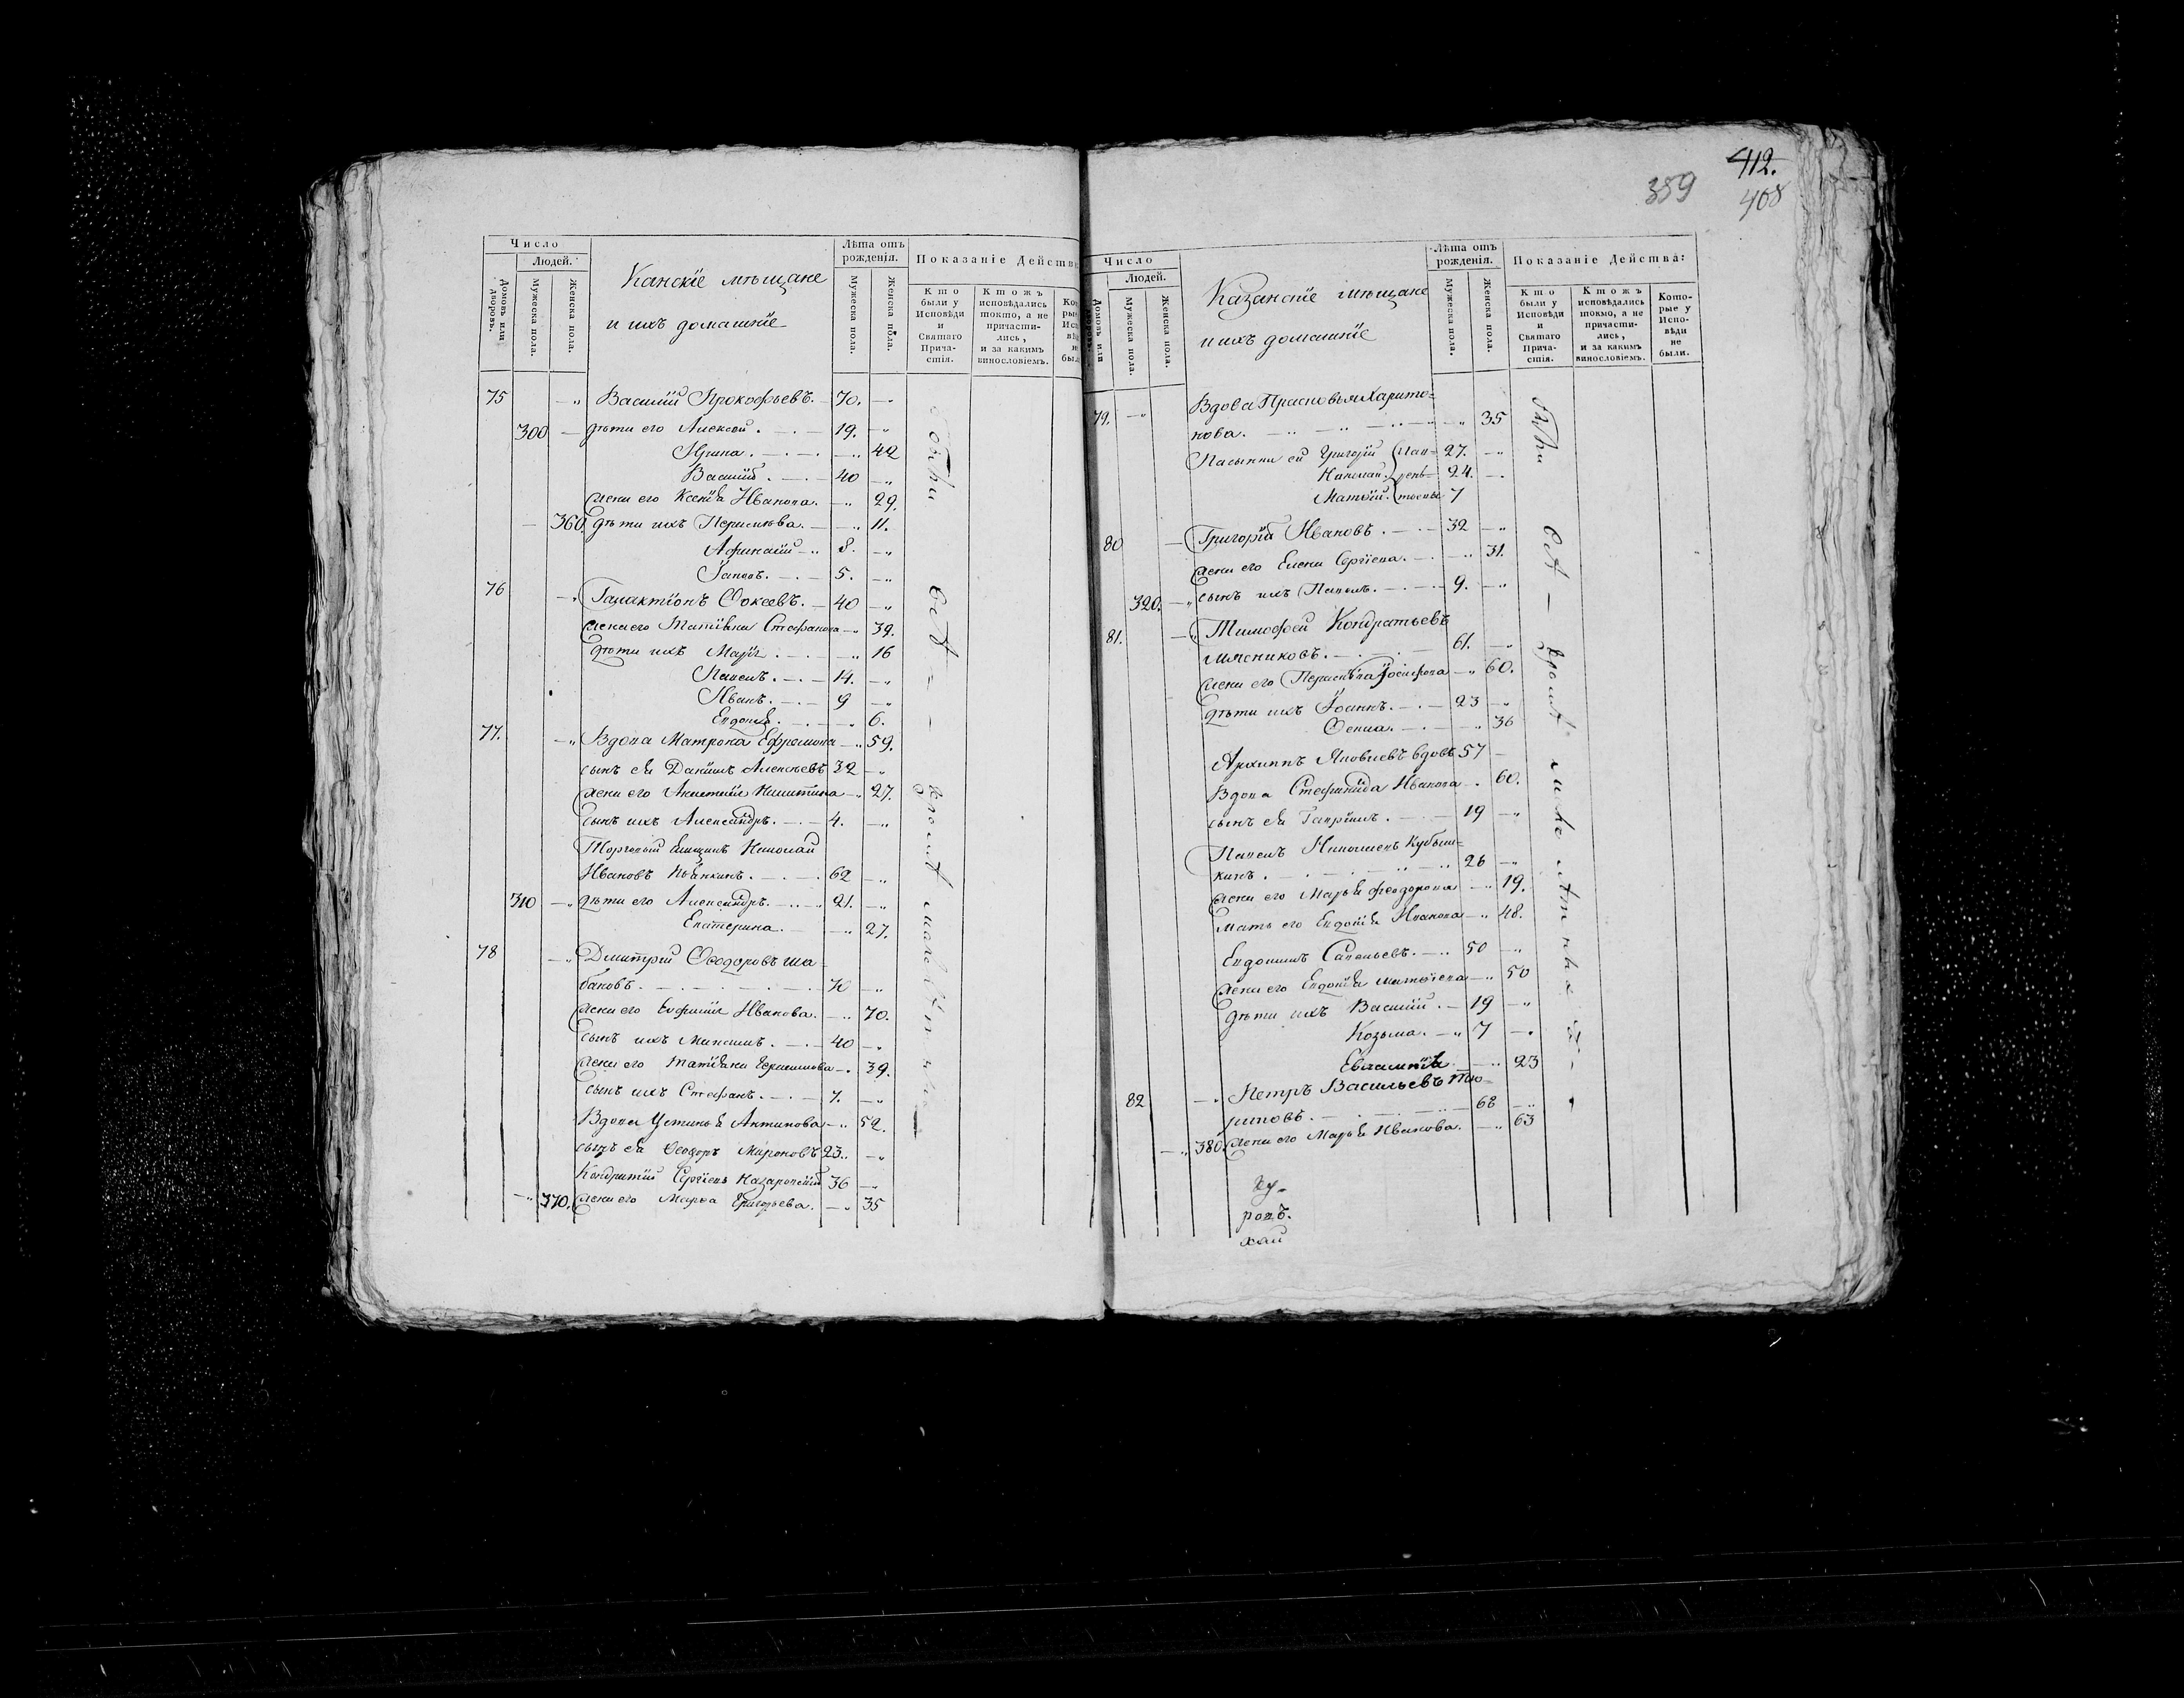 412.
359
408
Число
Людей.
Домовъ или дворовъ.
Мужеска пола.
Женска пола.
Канскіе мѣщане
и ихъ домашніе
Лѣта отъ рожденія.
Мужеска пола.
Женска пола.
Показаніе Действ
Кто были у Исповѣди и Святаго Прича-стія.
Ктожъ исповѣдались токмо, а не причасти-лись, и за какимъ винословіемъ.
75 Василій Прокофьевъ. 70.
300 дѣти его Алексѣй. 19.
Ирина. 42
Василій. 40
жена его Ксенія Иванова. 29.
360. дѣти ихъ Парасковья. 11.
Афанасій 8.
Іаковъ. 5.
76 Галактіонъ Ѳокеевъ. 40
жена его Татіяна Стефанова 39.
дѣти ихъ Марія 16
Павелъ. 14.
Иванъ. 9
Евдокія. 6.
77. Вдова Матрона Ефремова 59.
сынъ ея Даніилъ Алексѣевъ 32
жена его Никитина 27.
сынъ ихъ Александръ. 4.
Николай
Ивановъ 62
310 дѣти его Александръ. 21.
Екатерина. 27.
78 Дмитрій Ѳеодоровъ Ша=
бановъ. 70
жена его Евфимія Иванова. 70.
сынъ ихъ Михаилъ. 40
жена его Татіяна Герасимова 39.
сынъ ихъ Стефанъ. 7.
Вдова Устинья Антипова 52.
сынъ ея Ѳеодоръ Мироновъ 23.
Кондратій Сергіевъ 36
370. жена его Марѳа Григорьева. 35
Число
Людей.
Домовъ или
Мужеска пола.
Женска пола.
Казанскіе мѣщане
и ихъ домашніе
Лѣта отъ рожденія.
Мужеска пола.
Женска пола.
Показаніе Действа:
Кто были у Исповѣди и Святаго Прича-стія.
Ктожъ исповѣдались токмо, а не причасти-лись, и за какимъ винословіемъ.
Кото-рые у Испо-вѣди не были.
79. Вдова Прасковья Харито=
нова. 35
Пасынки ея Григорій 27.
Николай 24.
Матѳій 7
80 Григорій Ивановъ. 32
жена его Елена Сергіева. 31.
320. сынъ ихъ Павелъ. 9.
81. Тимофей Кондратьевъ
Мясниковъ. 61.
жена его Іосифова 60.
дѣти ихъ Іоаннъ. 23
Ѳекла. 36
Архиппъ Яковлевъ вдовъ 57
Вдова Стефанида Иванова 60.
сынъ ея Гавріилъ. 19
Павелъ Николаевъ Кубыш=
кинъ. 26
жена его Марья Ѳеодорова 19.
мать его Евдокія Иванова 48.
Евдокимъ Савельевъ. 50
жена его Евдокія Матѳіева 50
дѣти ихъ Василій. 19
Козьма. 7
Евлампія 23
82 Петръ Васильевъ Тю=
риновъ. 68
380. жена его Марья Иванова. 63